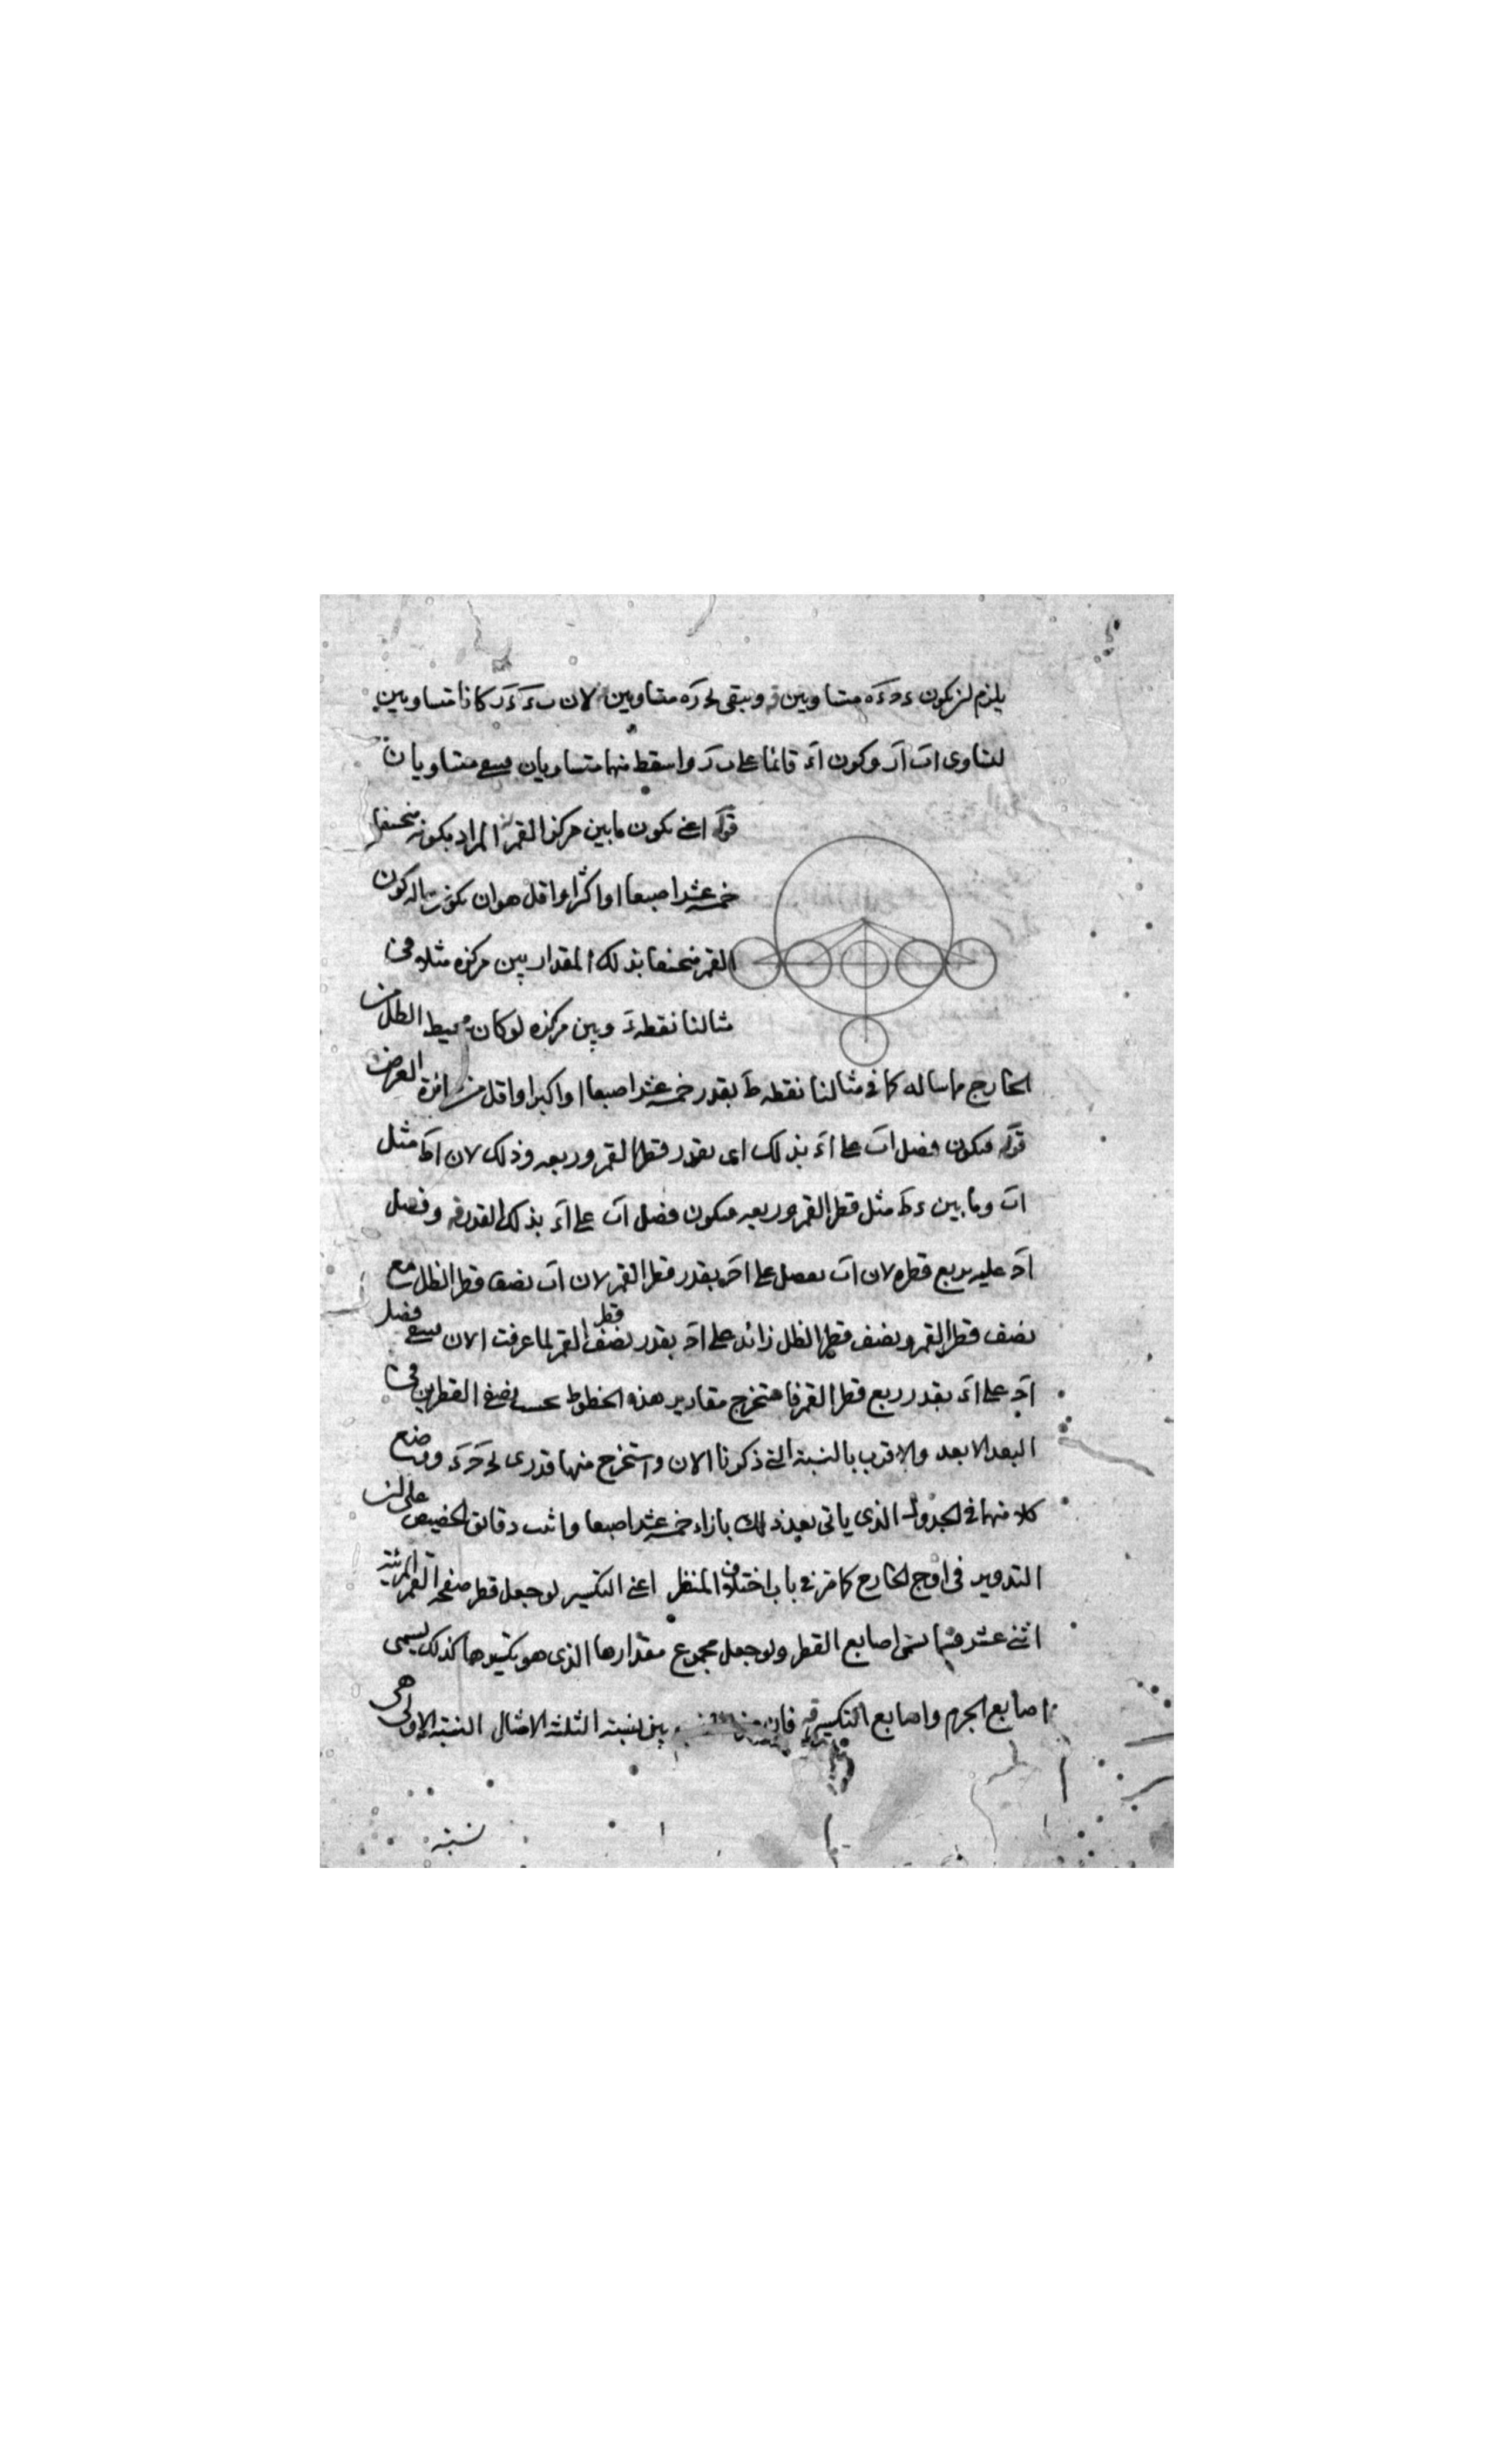 يلزم لن يكون ءح ءه متساويين ويبقى لح ره متساويين لان ٮء ءر كانا متساويين
لتساوى اٮ ار وكون اء قائما على ٮر واسقط منها متساويان ٮٮٯى متساويان
قوله اعنى يكون مابين مركز القمر المراد بكونه منخسفا
خمسة عشر اصبعا او اكثر او اقل هو ان يكون كون
القمر منخسفا بذلك المقدار بين مركزه مثلا فى
مثالنا نقطة ء وبين مركزه لو كان محيط الظل من
الخارج مماسا له كما فى مثالنا نقطه ط بقدر خمسة عشر اصبعا او اكبر او اقل من العرض
قوله فيكون فضل اٮ على اء بذلك اى بقدر قطر القمر وربعه وذلك لان اط مثل
اٮ وما بين ء ط مثل قطر القمر وربعه فيكون فضل اٮ على اء بذلك القدر وفضل
اح عليه بربع قطره لان اٮ يفضل على اح بقدر قطر القمر لان اٮ نصف قطر الظل مع
نصف قطر القمر ونصف قطر الظل زائد على اح بقدر نصف قطر القمر لما عرفت الان فضل
اح على اء بقدر ربع قطر القمر فاستخرج مقادير هذه الخطوط بحسب نصفى القطرين فى
البعد الابعد والاقرب بالنسبة التى ذكرنا الان واستخرج منها قدرى لح حء ووضع
كلا منهما فى الجدول الذى ياتى بعد ذلك بازاء خمسة عشر اصبعا واثبت دقائق الحضيض على لن
التدوير فى اوج الخارج كما مر فى باب اختلاف المنظر اعنى التكسير لو جعل قطر صفحة القمر المرئية
اثنى عشر قسما يسمى اصابع القطر ولو جعل مجموع مقدارها الذى هو تكسيرها كذلك يسمى
اصابع الجرم واصابع التكسير قوله فان بين نسبته الثلثة الامثال النسبة الاولى هى
نسبة